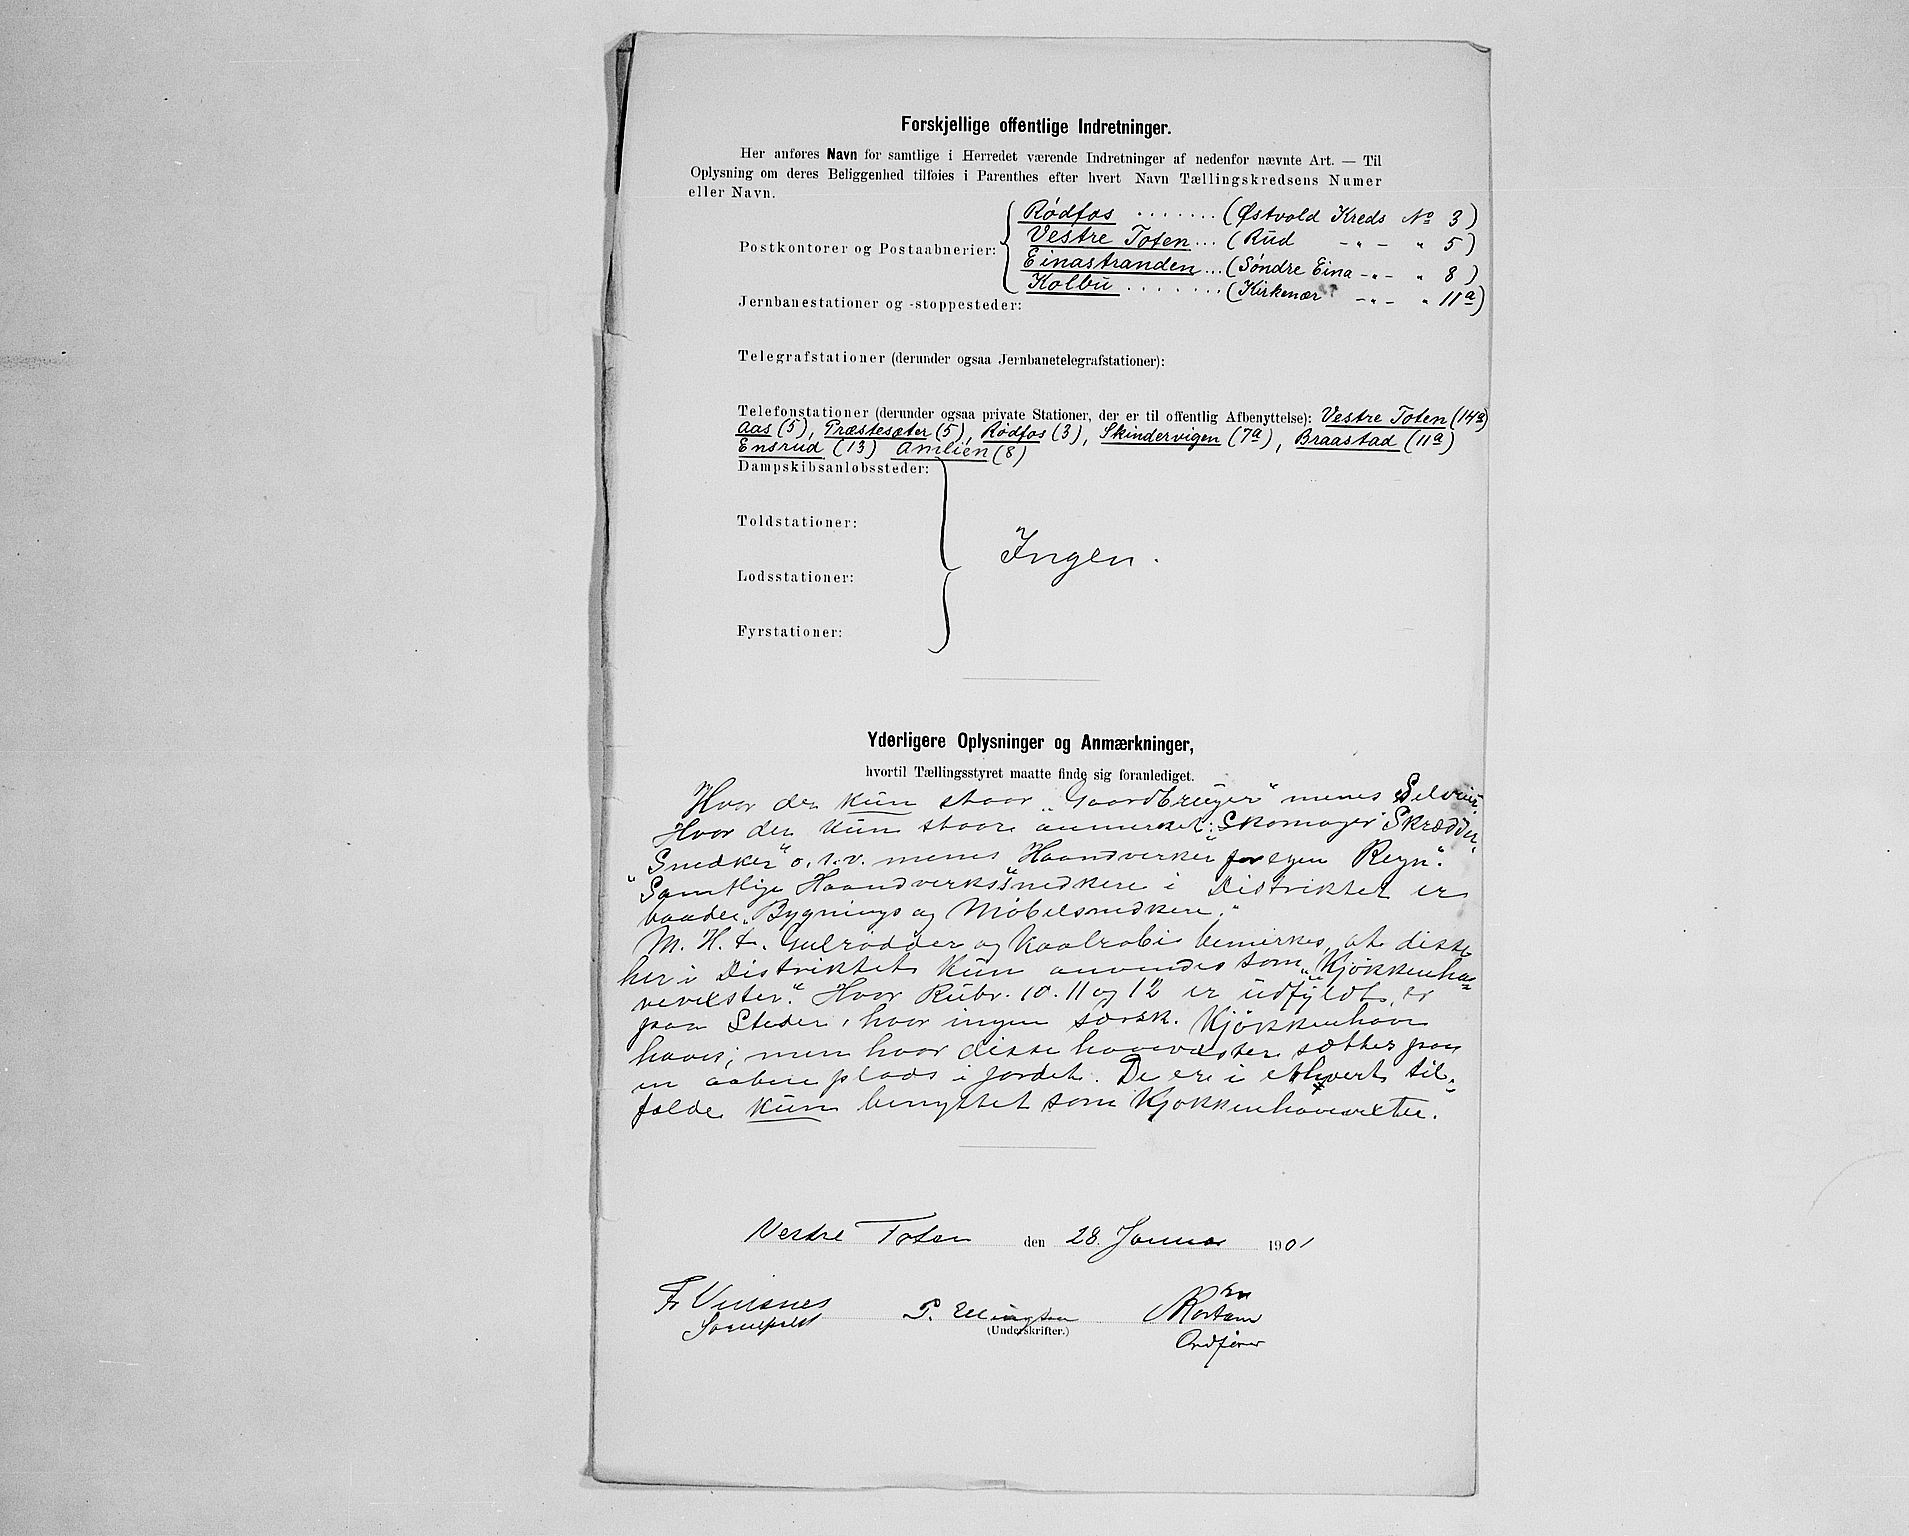 Forskjellige offentlige Indretninger.
Her anføres Navn for samtlige i Herredet værende Indretninger af nedenfor nævnte Art. — Til
Oplysning om deres Beliggenhed tilføies i Parenthes efter hvert Navn Tællingskredsens Numer
eller Navn.
Rødfos ....... (Østvold Kreds No 3)
Vestre Toten... (Rud -"- " 5)
Postkontorer og Postaabnerier:
Einastranden... (Søndre Eina -"- " 8)
Kolbu ........ (Kirkenær -"- " 11a)
Jernbanestationer og -stoppesteder:
Telegrafstationer (derunder ogsaa Jernbanetelegrafstationer):
Telefonstationer (derunder ogsaa private Stationer, der er til offentlig Afbenyttelse): Vestre Toten (14a)
Aas (5), Præstesæter (5), Rødfos (3), Skindervigen (7a), Braastad (11a)
Ensrud (13) Amlien (8)
Dampskibsanløbssteder:
Toldstationer:
Ingen.
Lodsstationer:
Fyrstationer:
Yderligere Oplysninger og Anmærkninger,
hvortil Tællingsstyret maatte finde sig foranlediget.
Hvor der kun staar „Gaardbruger" menes Selveier.
Hvor der kun staar anmerket: „Skomager" Skrædder,
„Snedker" o. s. v. menes „Haandverker for egen Regn".
Samtlige Haandverkssnedkere i Distriktet er
baade „Bygnings og Møbelsnedkere."
M. H. t. Gulrødder og Kaalrabi bemerkes, at disse
her i Distriktet kun anvendes som „Kjøkkenha-
vevexster". Hvor Rubr. 10. 11 og 12 er udfyldt, er
paa Steder, hvor ingen særsk. Kjøkkenhave
haves; men hvor disse havevexster sættes paa
en aaben plads i jordet. De er i ethvert til-
fælde kun benyttet som Kjøkkenhavevexter.
Vestre Toten den 28. Januar 1901
Fr
P. Ellingsen
(Underskrifter.)
Ordfører